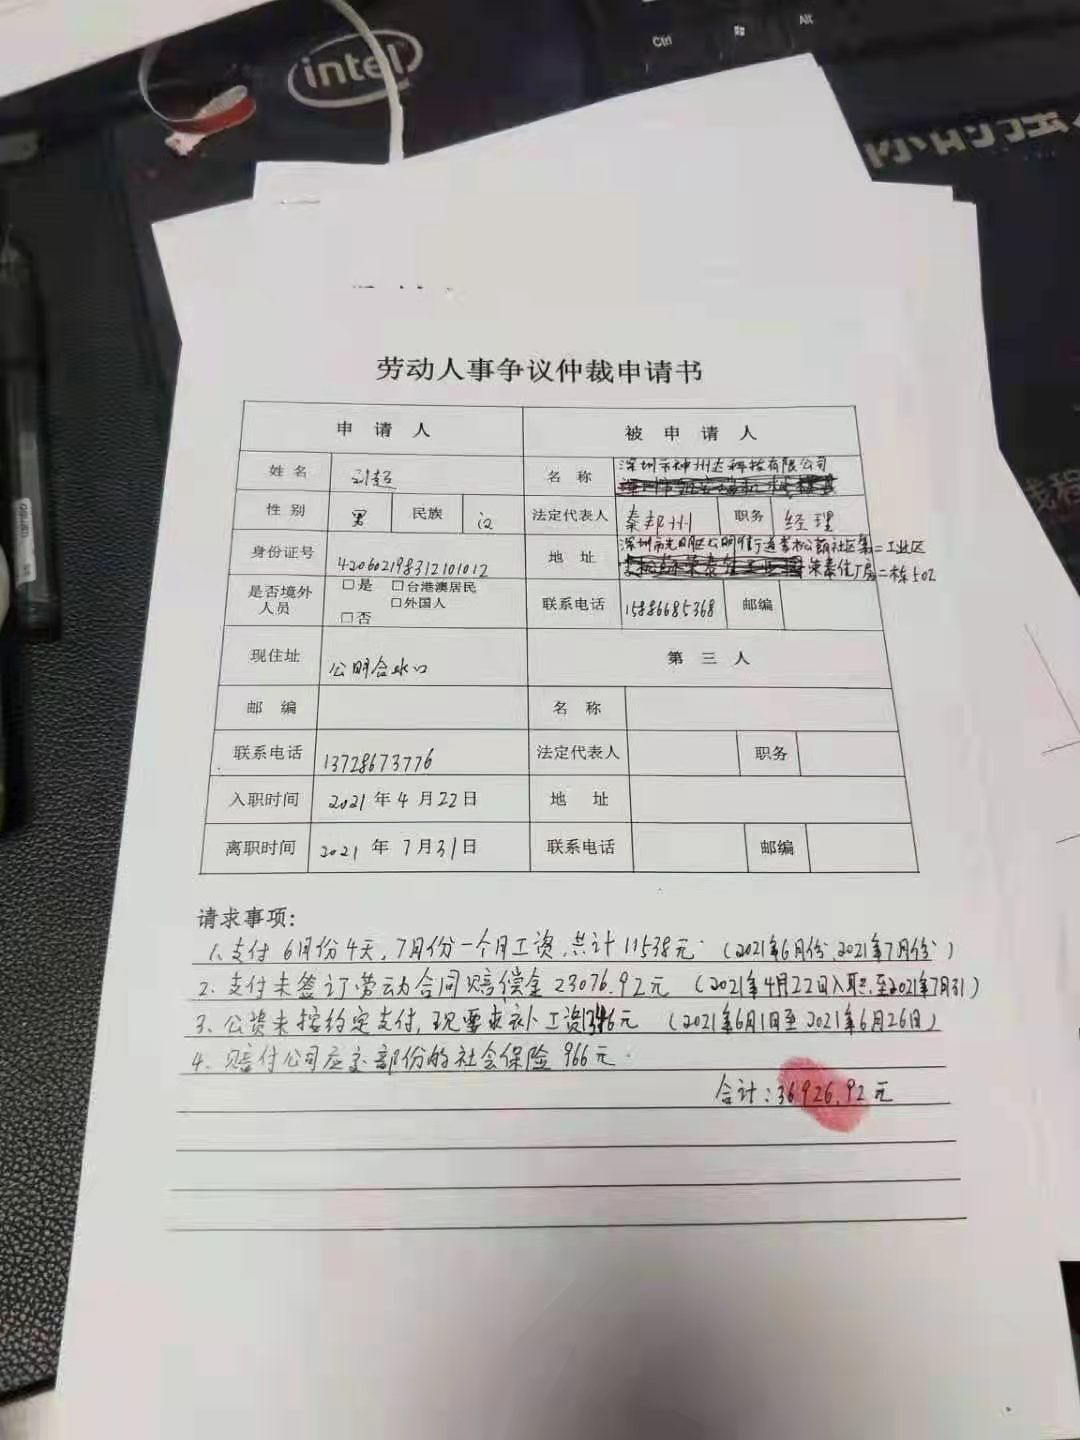 intel
Ctrl
Alt
劳动人事争议仲裁申请书
申 请 人
被 申 请 人
姓 名
刘超
名 称
深圳市神州达科技有限公司
性 别
男
民族
汉
法定代表人
秦邦州
职务
经理
身份证号
420602198312101012
地 址
深圳市光明区公明街道李松蓢社区第二工业区
荣泰佳厂房二栋502
是否境外人员
□是 □台港澳居民
□外国人
□否
联系电话
15886685368
邮编
现住址
公明合水口
第 三 人
邮 编
名 称
联系电话
13728673776
法定代表人
职务
入职时间
2021年4月22日
地 址
离职时间
2021年7月31日
联系电话
邮编
请求事项:
1.支付6月份4天,7月份一个月工资,共计11538元 (2021年6月份、2021年7月份)
2.支付未签订劳动合同赔偿金23076.92元 (2021年4月22日入职至2021年7月31)
3.公资未按约定支付,现要求补工资1346元 (2021年6月1日至2021年6月26日)
4.赔付公司应交部份的社会保险966元.
合计:36926.92元